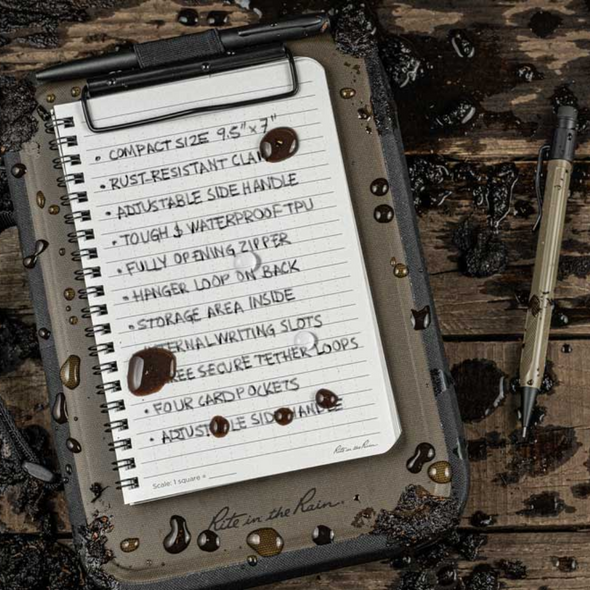 • COMPACT SIZE 9.5" x 7"
• RUST-RESISTANT
• ADJUSTABLE SIDE HANDLE
• TOUGH & WATERPROOF TPU
• FULLY OPENING ZIPPER
• HANGER LOOP ON BACK
• STORAGE AREA INSIDE
WRITING SLOTS
SECURE TETHER LOOPS
• FOUR CARD POCKETS
•
Rite in the Rain
Scale: 1 square =
Rite in the Rain.